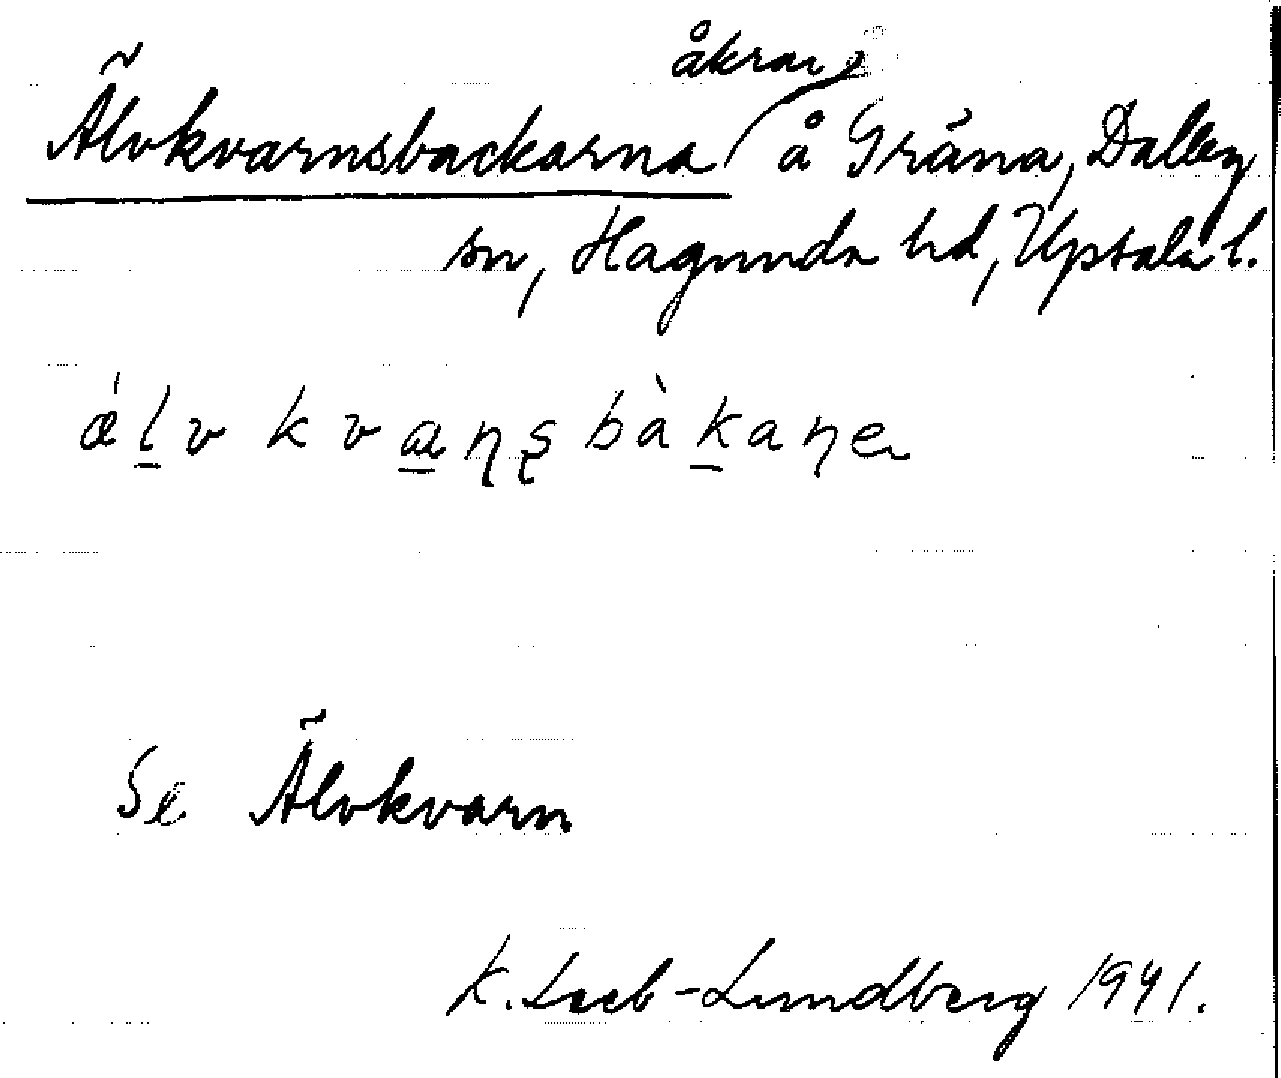 Älvkvarnsbackarna åkrar å Gräna, Dalby
sn, Hagunda hd, Uppsala l.
ǽl̲v kva̲ɳʂbàk̲aɳe
Se Älvkvarn
K. Leeb-Lundberg 1941.